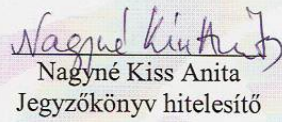 Nagyné Kiss Anita
Nagyné Kiss Anita
Jegyzőkönyv hitelesítő